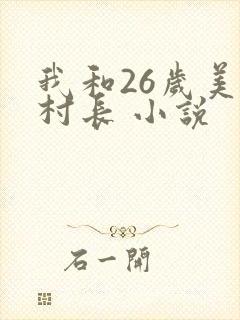 我和26歲美
村長 小說
石一開